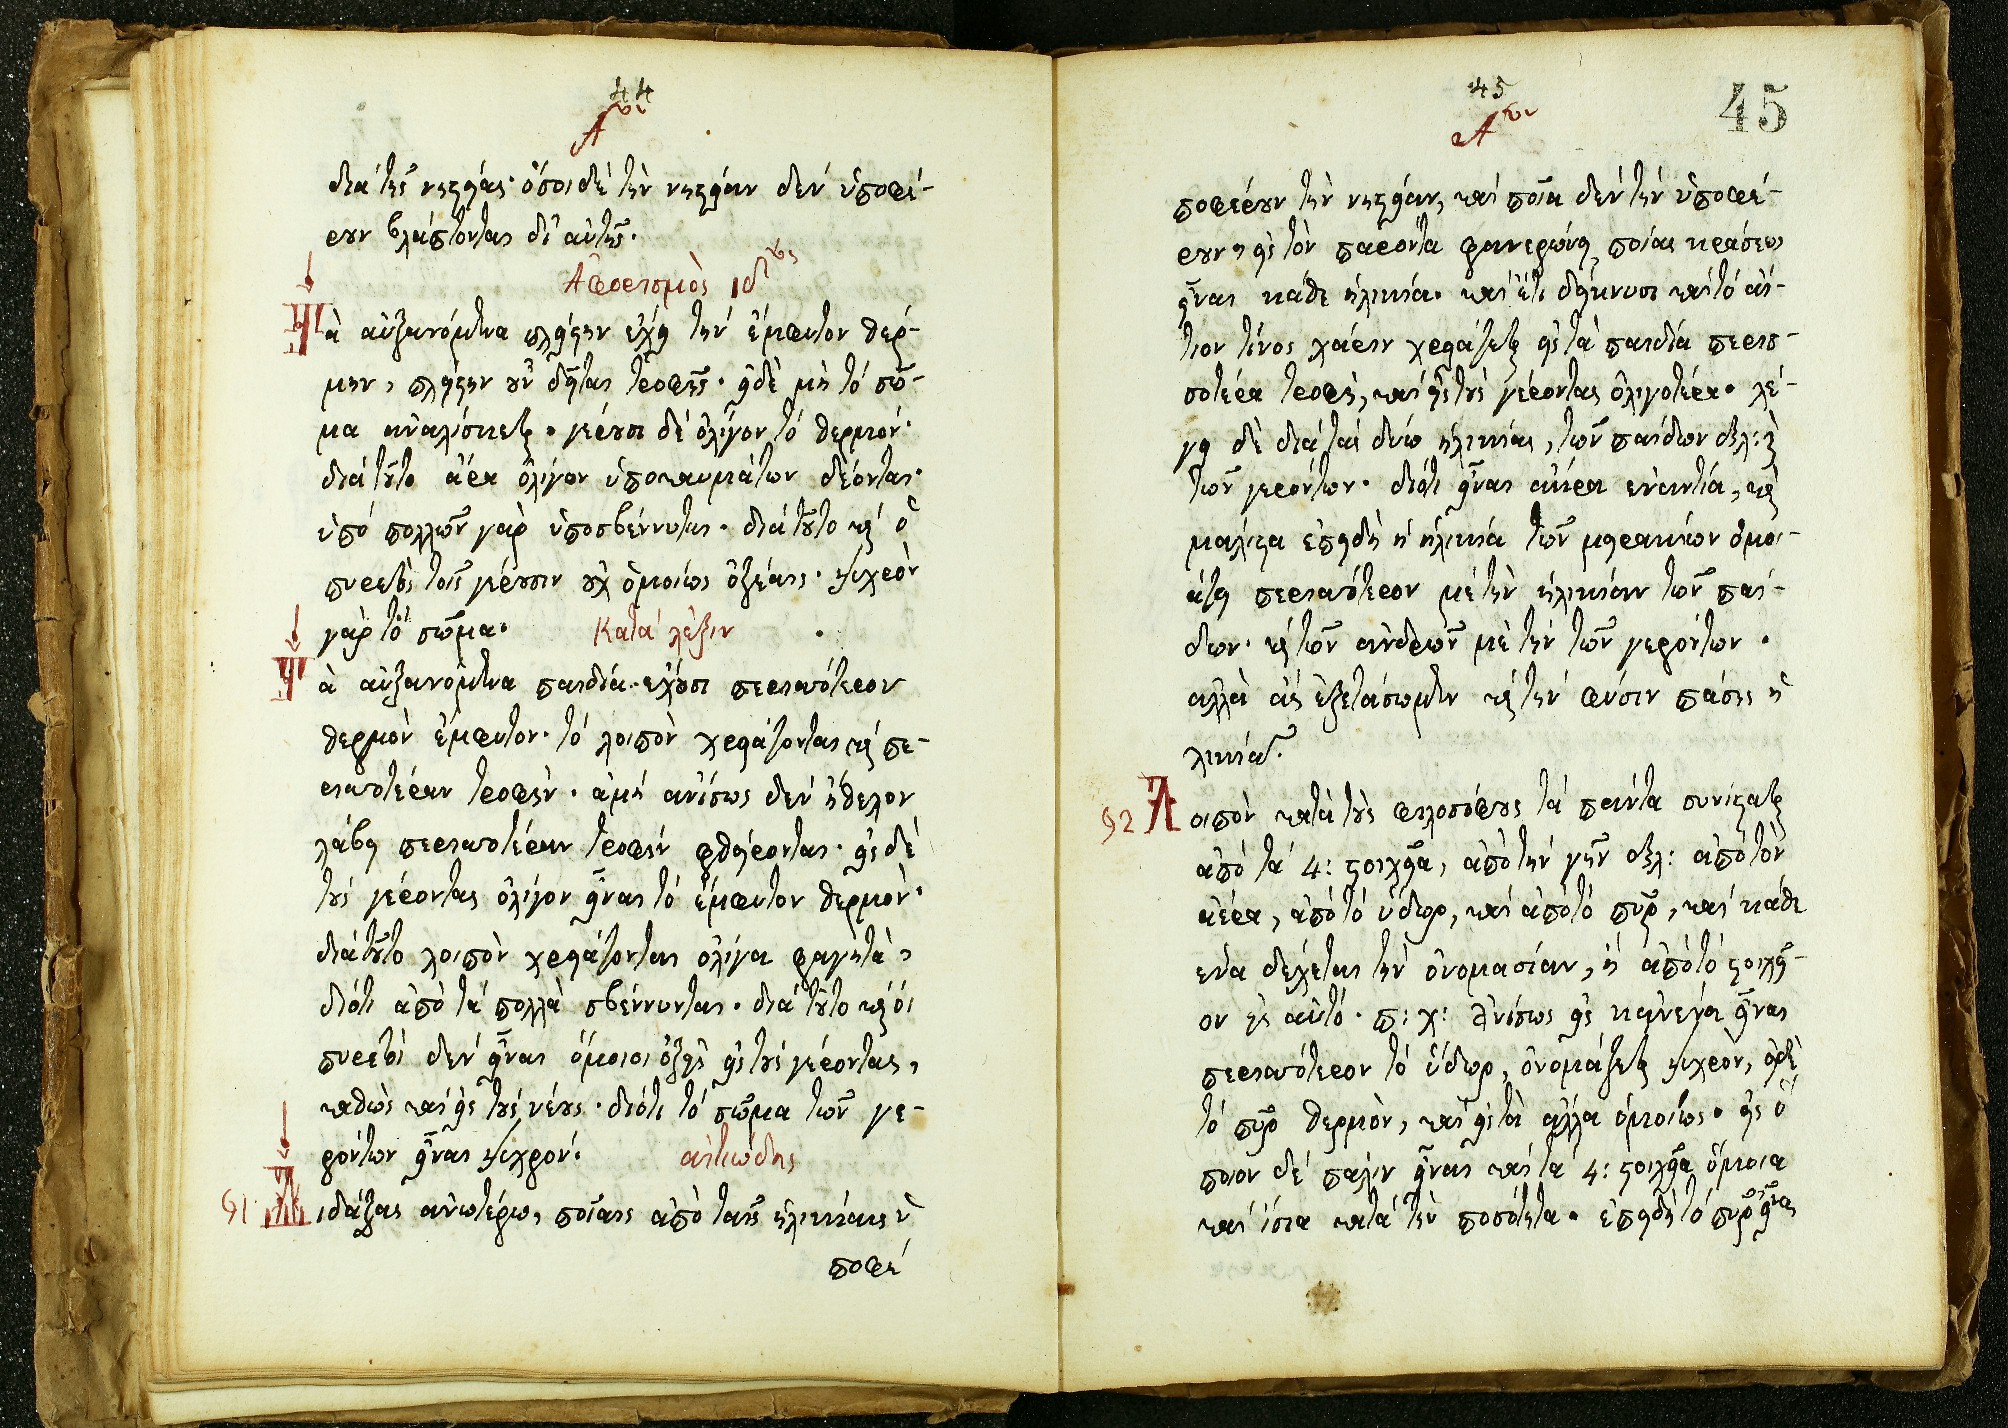 44
Αον
διὰ τῆς νηστείας· ὅσοι δὲ τὴν νηστείαν δὲν ὑποφέ-
ρουν βλάπτονται δι' αὐτῆς.
Ἀφορισμὸς ιδος
Τὰ αὐξανόμενα πλεῖστον ἔχει τὴν ἔμφυτον θερ-
μὴν, πλείστην οὖν δεῖται τροφῆς· εἰ δὲ μὴ τὸ σῶ-
μα ἀναλίσκεται. γέρουσι δὲ ὀλίγον τὸ θερμόν·
διὰ τοῦτο ἄρα ὀλίγον ὑποκαυμάτων δέονται·
ὑπὸ πολλῶν γὰρ ὑποσβέννυται. διὰ τοῦτο καὶ οἱ
πυρετοὶ τοῖς γέρουσιν οὐχ ὁμοίως ὀξέαις. ψυχρὸν
γὰρ τὸ σῶμα. Κατὰ λέξιν
Τὰ αὐξανόμενα παιδία ἔχουσι περισσότερον
θερμὸν ἔμφυτον· τὸ λοιπὸν χρειάζονται καὶ πε-
ρισσοτέραν τροφὴν. ἀμὴ ἀνίσως δὲν ἤθελον
λάβῃ περισσοτέραν τροφὴν φθείρονται. εἰς δὲ
τοὺς γέροντας ὀλίγον εἶναι τὸ ἔμφυτον θερμὸν·
διὰ τοῦτο λοιπὸν χρειάζονται ὀλίγα φαγητὰ,
διότι ἀπὸ τὰ πολλὰ σβέννυνται. διὰ τοῦτο καὶ οἱ
πυρετοὶ δὲν εἶναι ὅμοιοι ὀξεῖς εἰς τοὺς γέροντας,
καθὼς καὶ εἰς τοὺς νέους. διότι τὸ σῶμα τῶν γε-
ρόντων εἶναι ψυχρόν. αἰτιώδης
91. Διδάξας ἀνωτέρω, ποίαις ἀπὸ ταῖς ἡλικίαις ὑ
ποφέ
45
45
Αον
ποφέρουν τὴν νηστείαν, καὶ ποῖα δὲν τὴν ὑποφέ-
ρουν, εἰς τὸν παρόντα φανερώνει, ποίας κράσεως
εἶναι κάθε ἡλικία. καὶ ἔτι δείκνυσι καὶ τὸ αἴ-
τιον τίνος χάριν χρειάζεται εἰς τὰ παιδία περισ-
σοτέρα τροφὴ, καὶ εἰς τοὺς γέροντας ὀλιγοτέρα. λέ-
γει δὲ διὰ τὰς δύω ἡλικίας, τῶν παίδων δηλ: καὶ
τῶν γερόντων. διότι εἶναι ἄκρα ἐναντία, καὶ
μάλιστα ἐπειδὴ ἡ ἡλικία τῶν μειρακίων ὁμοι-
άζει περισσότερον μὲ τὴν ἡλικίαν τῶν παί-
δων. καὶ τῶν ἀνδρῶν μὲ τὴν τῶν γερόντων.
ἀλλὰ ἂς ἐξετάσωμεν καὶ τὴν φύσιν πάσης ἡ
λικίας.
92 Λοιπὸν κατὰ τοὺς φιλοσόφους τὰ πάντα συνίσταται
ἀπὸ τὰ 4: στοιχεῖα, ἀπὸ τὴν γῆν δηλ: ἀπὸ τὸν
ἀέρα, ἀπὸ τὸ ὕδωρ, καὶ ἀπὸ τὸ πῦρ, καὶ κάθε
ἕνα δέχεται τὴν ὀνομασίαν, ἢ ἀπὸ τὸ στοιχεῖ-
ον εἰς αὐτό. π: χ: Ἀνίσως εἰς κανένα εἶναι
περισσότερον τὸ ὕδωρ, ὀνομάζεται ψυχρὸν, εἰ δὲ
τὸ πῦρ θερμὸν, καὶ εἰς τὰ ἄλλα ὁμοίως. εἰς ὁ
ποῖον δὲ πάλιν εἶναι καὶ τὰ 4: στοιχεῖα ὅμοια
καὶ ἴσια κατὰ τὴν ποσότητα. ἐπειδὴ τὸ πῦρ εἶναι